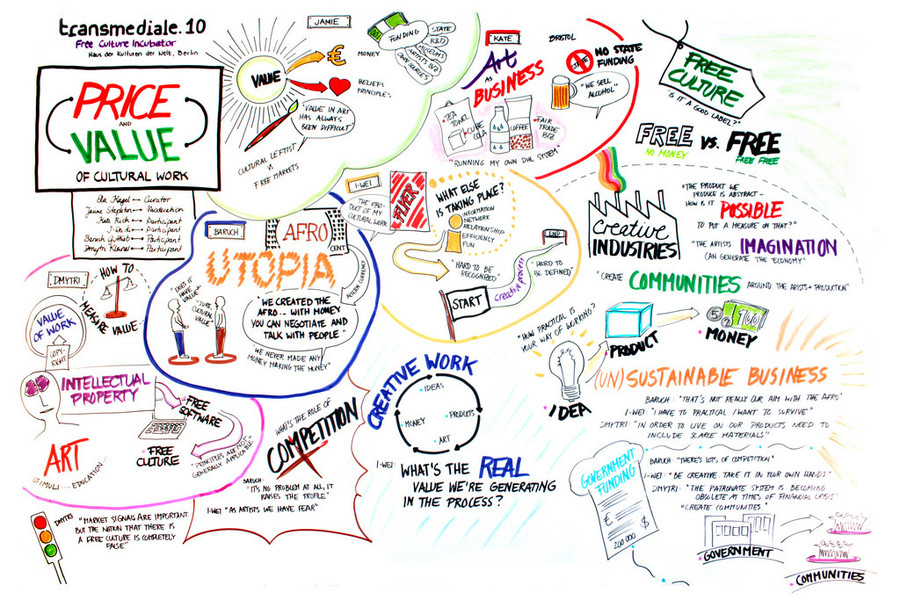 transmediale.10
Free Culture Incubator
Haus der Kulturen der Welt, Berlin
PRICE
AND
VALUE
OF CULTURAL WORK
Curator
Moderation
Participant
Participant
Participant
Participant
JAMIE
VALUE
€
MONEY
BELIEFS
PRINCIPLES
FUNDING
STATE
R&D
MUSEUMS
ARTISTS BIZ
"VALUE IN ART
HAS ALWAYS
BEEN DIFFICULT"
CULTURAL LEFTIST
VS
FREE MARKETS
KATE
BRISTOL
Art
AS
BUSINESS
NO STATE
FUNDING
"WE SELL
ALCOHOL"
TEA
TOWEL
CUBE
COLA
COFFEE
FAIR
TRADE
BIZ
"RUNNING MY OWN DHL SYSTEM"
FREE
CULTURE
"IS IT A GOOD LABEL?"
FREE VS. FREE
NO MONEY
FREE FREE
Creative
INDUSTRIES
"THE PRODUCT WE
PRODUCE IS ABSTRACT -
HOW IS IT POSSIBLE
TO PUT A MEASURE ON THAT?"
"THE ARTISTS IMAGINATION
CAN GENERATE THE ECONOMY"
"CREATE COMMUNITIES AROUND THE ARTISTS + PRODUCTION"
I-WEI
THE PRO-
DUCT OF MY
CULTURAL WORK
FLYER
WHAT ELSE
IS TAKING PLACE?
INFORMATION
NETWORK
RELATIONSHIPS
EFFICIENCY
FUN
"HARD TO BE
RECOGNIZED"
START
creative process
END
"HARD TO
BE DEFINED"
BARUCH
AFRO
CENT
UTOPIA
DOES IT
HAVE VALUE?
SURE
CULTURAL
VALUE"
"WE CREATED THE
AFRO... WITH MONEY
YOU CAN NEGOTIATE AND
TALK WITH PEOPLE"
"WE NEVER MADE ANY
MONEY MAKING THE MONEY"
DMYTRI
HOW TO
MEASURE VALUE?
VALUE
OF WORK
COPY-
RIGHT
INTELLECTUAL
PROPERTY
FREE
SOFTWARE
FREE
CULTURE
"PRINCIPLES ARE NOT
GENERALLY APPLICABLE"
ART
STIMULI ... EDUCATION
DMYTRI
"MARKET SIGNALS ARE IMPORTANT
BUT THE NOTION THAT THERE IS
A FREE CULTURE IS COMPLETELY
FALSE"
WHAT'S THE ROLE OF
COMPETITION
BARUCH:
"IT'S NO PROBLEM AT ALL, IT
RAISES THE PROFILE"
I-WEI "AS ARTISTS WE HAVE FEAR"
CREATIVE WORK
IDEAS
PRODUCTS
ART
MONEY
I-WEI
WHAT'S THE REAL
VALUE WE'RE GENERATING
IN THE PROCESS?
"HOW PRACTICAL IS
YOUR WAY OF WORKING?"
IDEA
PRODUCT
MONEY
(UN)SUSTAINABLE BUSINESS
BARUCH: "THAT'S NOT REALLY OUR AIM WITH THE AFRO"
I-WEI "I HAVE TO PRACTICAL I WANT TO SURVIVE"
DMYTRI "IN ORDER TO LIVE ON OUR PRODUCTS NEED TO
INCLUDE SCARCE MATERIALS"
GOVERNMENT
FUNDING
€
$
200 000
BARUCH "THERE'S LOTS OF COMPETITION"
I-WEI "BE CREATIVE. TAKE IT IN YOUR OWN HANDS"
DMYTRI: "THE PATRONATE SYSTEM IS BECOMING
OBSOLETE AT TIMES OF FINANCIAL CRISIS"
"CREATE COMMUNITIES"
GOVERNMENT
COMMUNITIES